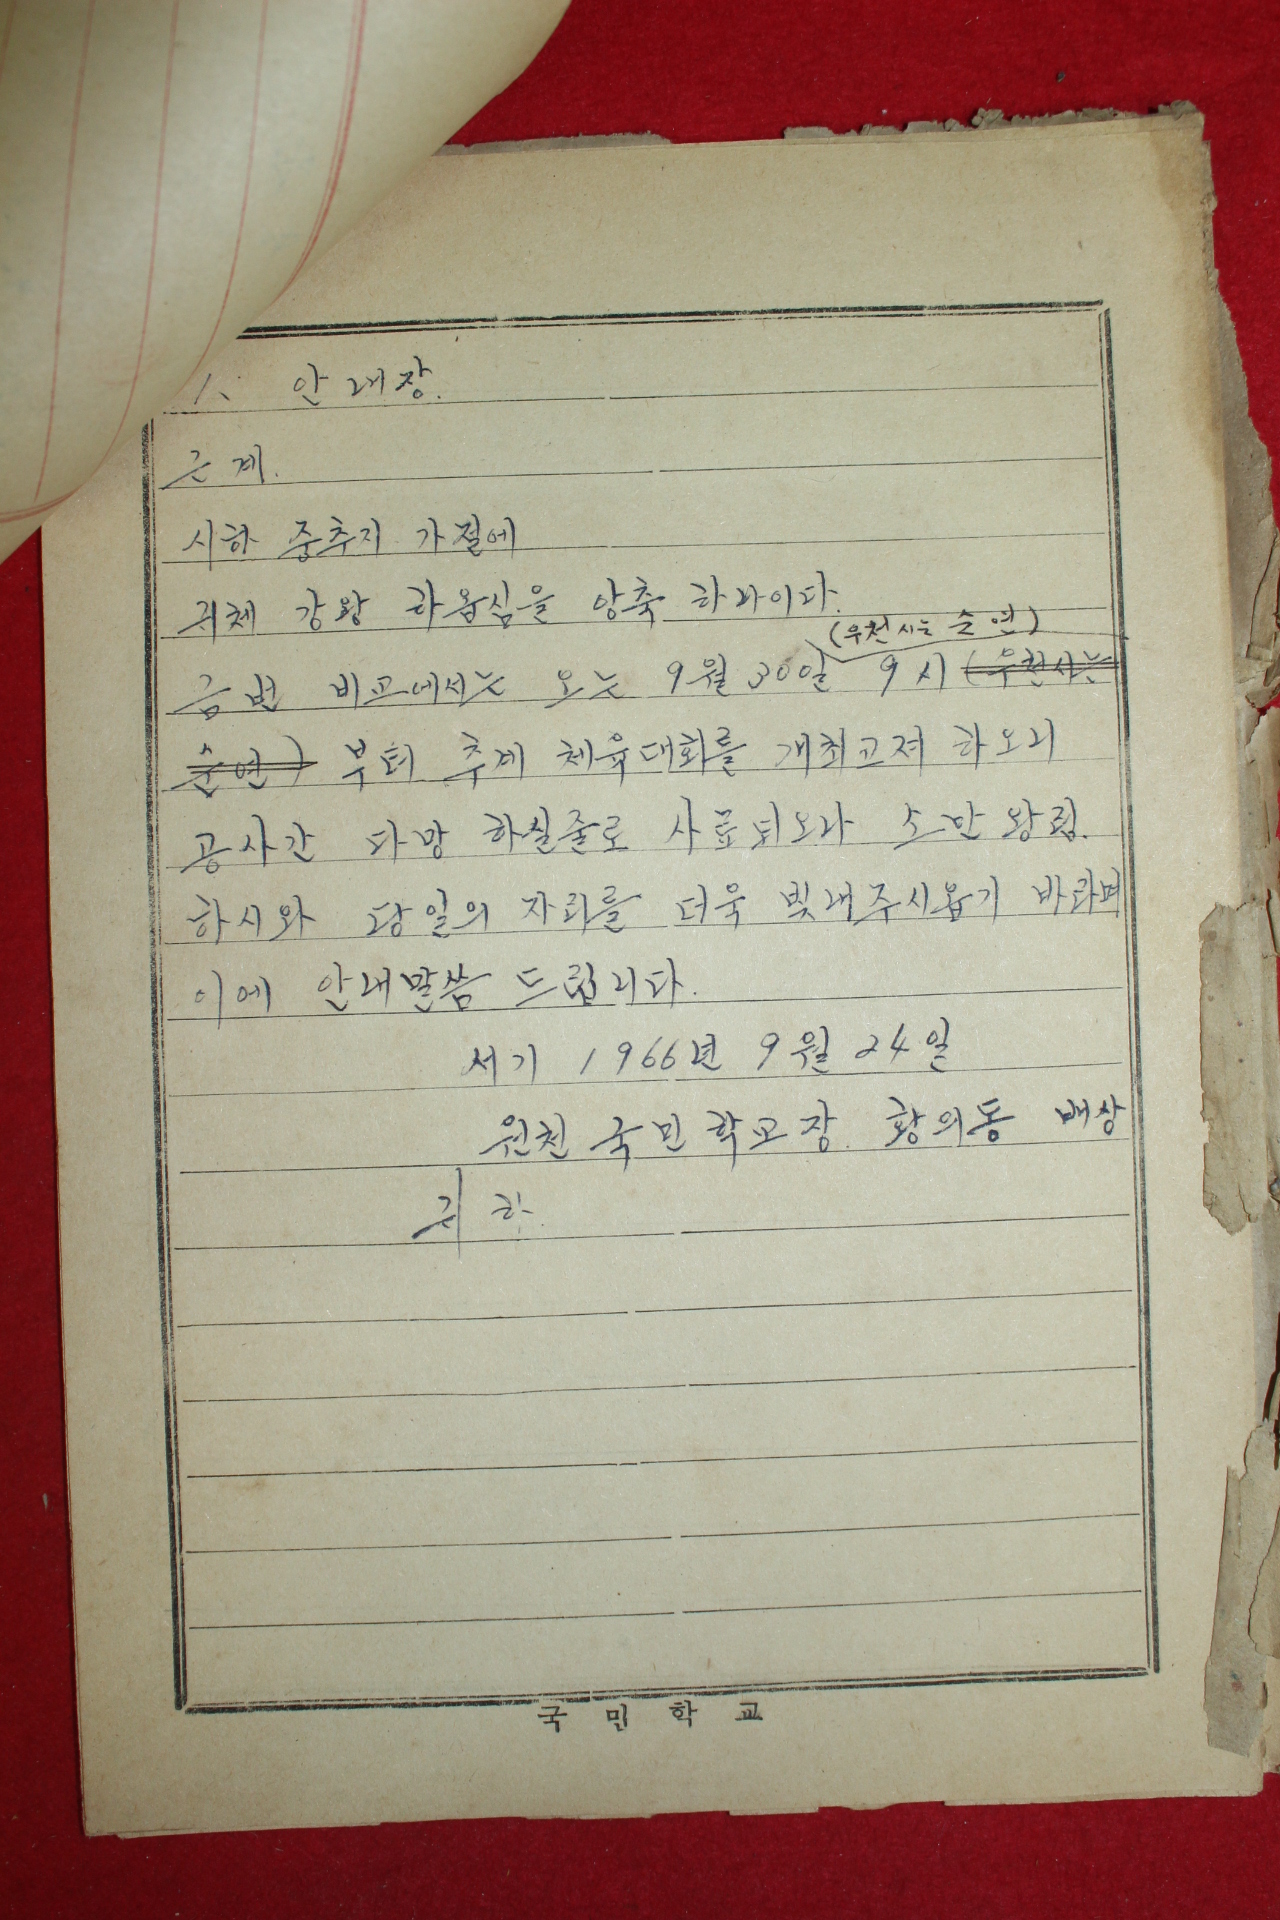 1. 안내장.
근계.
시하 중추지 가절에
귀체 강왕 하옵심을 앙축 하나이다.
(우천시는 순연)
금번 비교에서는 오는 9월 30일 9시 (우천시는
순연) 부터 추계 체육대회를 개최고져 하오니
공사간 다망 하실줄로 사료되오나 소만 왕림
하시와 당일의 자리를 더욱 빛내주시옵기 바라며
이에 안내말씀 드립니다.
서기 1966년 9월 24일
원천 국민학교장 황의동 배상
귀하.
국민학교